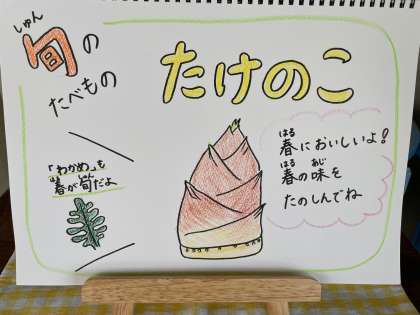 しゅん
旬の
たべもの
たけのこ
はる
春においしいよ!
はる あじ
春の味を
たのしんでね
「わかめ」も
春が旬だよ